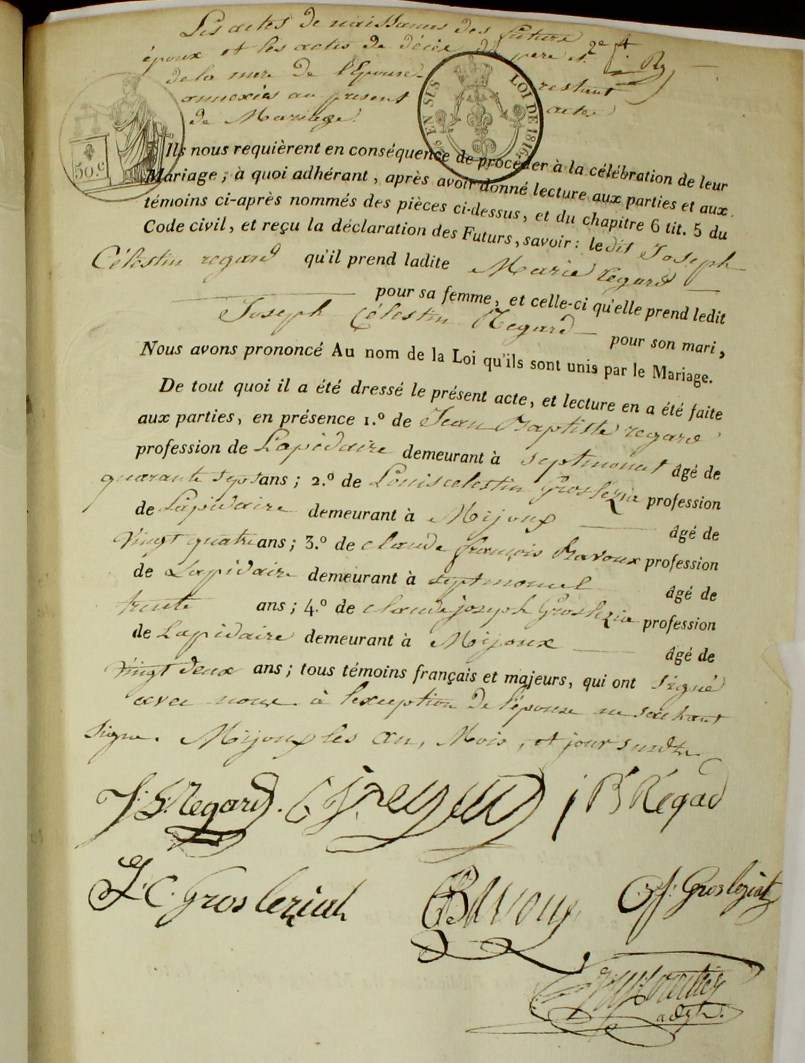 Les actes de naissances des futurs
époux et les actes de décès du père et
de la mère de l'Epouse restant
annexés au present acte
de Mariage.
50 C
EN SES
LOI DE 1816
Ils nous requièrent en conséquence de procéder à la célébration de leur
Mariage; à quoi adhérant, après avoir donné lecture aux parties et aux
témoins ci-après nommés des pièces ci-dessus, et du chapitre 6 tit. 5 du
Code civil, et reçu la déclaration des Futurs, savoir: ledit Joseph
Célestin regard qu'il prend ladite Marie regard
pour sa femme, et celle-ci qu'elle prend ledit
Joseph Célestin Regard pour son mari,
Nous avons prononcé Au nom de la Loi qu'ils sont unis par le Mariage.
De tout quoi il a été dressé le présent acte, et lecture en a été faite
aux parties, en présence 1.º de Jean Baptiste regard
profession de Lapidaire demeurant à septmoncel âgé de
quarante sept ans; 2.º de Louis celestin Groslezia profession
de Lapidaire demeurant à Mijoux âgé de
vingt quatre ans; 3.º de claude françois Bavoux profession
de Lapidaire demeurant à septmoncel âgé de
trente ans; 4.º de claude joseph Groslezia profession
de Lapidaire demeurant à Mijoux âgé de
vingt deux ans; tous témoins français et majeurs, qui ont signé
avec nous à l'exception de l'épouse ne sachant
signe. Mijoux les an, Mois, et jour susdits
J. C. Regard. j B Régad
L. C. Grosleziat CF Bavoux C. j. Grosleziat
adjt.